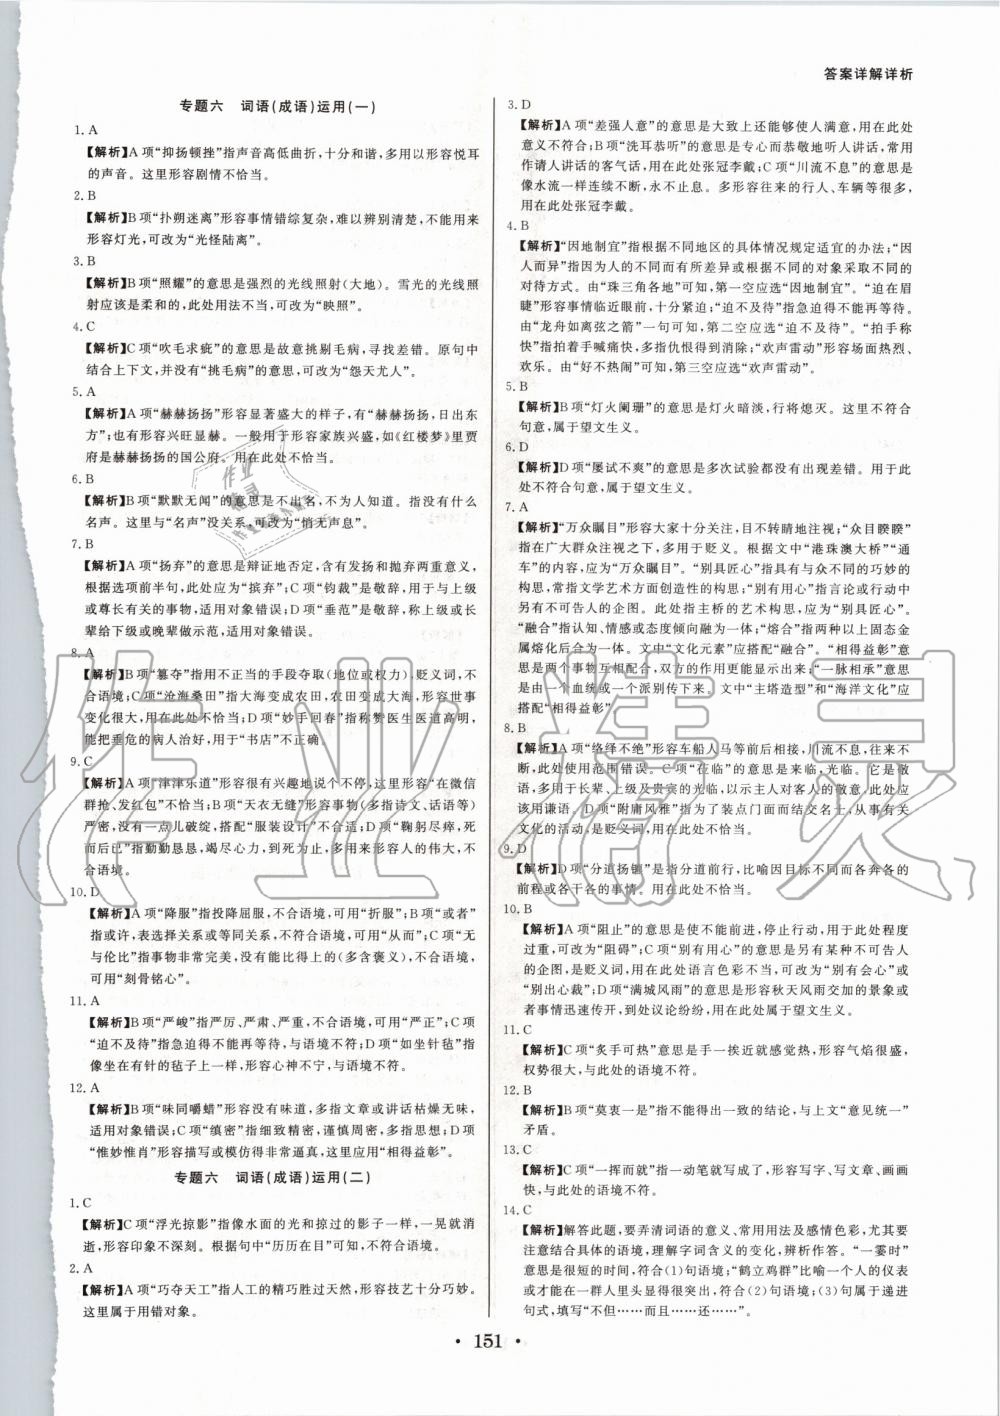 答案详解详析
专题六　词语(成语)运用(一)
1. A
【解析】A 项“抑扬顿挫”指声音高低曲折,十分和谐,多用以形容悦耳
的声音。这里形容剧情不恰当。
2. B
【解析】B 项“扑朔迷离”形容事情错综复杂,难以辨别清楚,不能用来
形容灯光,可改为“光怪陆离”。
3. B
【解析】B 项“照耀”的意思是强烈的光线照射(大地)。雪光的光线照
射应该是柔和的,此处用法不当,可改为“映照”。
4. C
【解析】C 项“吹毛求疵”的意思是故意挑剔毛病,寻找差错。原句中
结合上下文,并没有“挑毛病”的意思,可改为“怨天尤人”。
5. A
【解析】A 项“赫赫扬扬”形容显著盛大的样子,有“赫赫扬扬,日出东
方”;也有形容兴旺显赫。一般用于形容家族兴盛,如《红楼梦》里贾
府是赫赫扬扬的国公府。用在此处不恰当。
6. B
【解析】B 项“默默无闻”的意思是不出名,不为人知道。指没有什么
名声。这里与“名声”没关系,可改为“悄无声息”。
7. B
【解析】A 项“扬弃”的意思是辩证地否定,含有发扬和抛弃两重意义,
根据选项前半句,此处应为“摈弃”;C 项“钧裁”是敬辞,用于与上级
或尊长有关的事物,适用对象错误;D 项“垂范”是敬辞,称上级或长
辈给下级或晚辈做示范,适用对象错误。
8. A
【解析】B 项“篡夺”指用不正当的手段夺取(地位或权力),贬义词,不
合语境;C 项“沧海桑田”指大海变成农田,农田变成大海,形容世事
变化很大,用在此处不恰当;D 项“妙手回春”指称赞医生医道高明,
能把垂危的病人治好,用于“书店”不正确
9. C
【解析】A 项“津津乐道”形容很有兴趣地说个不停,这里形容“在微信
群抢、发红包”不恰当;B 项“天衣无缝”形容事物(多指诗文、话语等)
严密,没有一点儿破绽,搭配“服装设计”不合适;D 项“鞠躬尽瘁,死
而后已”指勤勤恳恳,竭尽心力,到死为止,多用来形容人的伟大,不
合语境。
10. D
【解析】A 项“降服”指投降屈服,不合语境,可用“折服”;B 项“或者”
指或许,表选择关系,不合语境,可用“从而”;C 项“无
与伦比”指事物非常完美,没有能比得上的(多含褒义),不合语境,
可用“刻骨铭心”。
11. A
【解析】B 项“严峻”指严厉、严肃、严重,不合语境,可用“严正”;C 项
“迫不及待”指急迫得不能再等待,与语境不符;D 项“如坐针毡”指
像坐在有针的毡子上一样,形容心神不宁,与语境不符。
12. A
【解析】B 项“味同嚼蜡”形容没有味道,多指文章或讲话枯燥无味,
适用对象错误;C 项“缜密”指细致精密,谨慎周密,多指思想;D 项
“惟妙惟肖”形容描写或模仿得非常逼真,这里应用“相得益彰”。
专题六　词语(成语)运用(二)
1. C
【解析】C 项“浮光掠影”指像水面的光和掠过的影子一样,一晃就消
逝,形容印象不深刻。根据句中“历历在目”可知,不符合语境。
2. A
【解析】A 项“巧夺天工”指人工的精巧胜过天然,形容技艺十分巧妙。
这里属于用错对象。
3. D
【解析】A 项“差强人意”的意思是大致上还能够使人满意,用在此处
意义不符合;B 项“洗耳恭听”的意思是专心而恭敬地听人讲话,常用
作请人讲话的客气话,用在此处张冠李戴;C 项“川流不息”的意思是
像水流一样连续不断,永不止息。多形容过往的行人、车辆等很多,
用在此处张冠李戴。
4. B
【解析】“因地制宜”指根据不同地区的具体情况规定适宜的办法;“因
人而异”指因为人的不同而有所差异,根据不同的对象采取不同的
对待方式。由“珠三角各地”可知,第一空应选“因地制宜”。“迫在眉
睫”形容事情临近眼前,十分紧迫;“迫不及待”指急迫得不能再等待。
由“龙舟如离弦之箭”一句可知,第二空应选“迫不及待”。“拍手称
快”指拍着手喊痛快,多指仇恨得到消除;“欢声雷动”形容场面热烈、
欢乐。由“好不热闹”可知,第三空应选“欢声雷动”。
5. B
【解析】B 项“灯火阑珊”的意思是灯火暗淡,行将熄灭。这里不符合
句意,属于望文生义。
6. D
【解析】D 项“屡试不爽”的意思是多次试验都没有出现差错。用于此
处不符合句意,属于望文生义。
7. A
【解析】“万众瞩目”形容大家十分关注,目不转睛地注视;“众目睽睽”
指在广大群众注视之下,多用于贬义。根据文中“港珠澳大桥”“通
车”的内容,应为“万众瞩目”。“别具匠心”指具有与众不同的巧妙的
构思,常指文学艺术方面创造性的构思;“别有用心”指言论或行动中
另有不可告人的企图。此处指主桥的艺术构思,应为“别具匠心”。
“融合”指认知、情感或态度倾向融为一体;“熔合”指两种以上固态金
属熔化后合为一体。文中“文化元素”应搭配“融合”。“相得益彰”意
思是两个事物互相配合,双方的作用更能显示出来;“一脉相承”意思
是由一个血统或一个派别传下来。文中“主塔造型”和“海洋文化”应
搭配“相得益彰”
8. B
【解析】A 项“络绎不绝”形容车船人马等前后相接,川流不息,用在此
处使用范围错误。C 项“莅临”的意思是来临,光临。它是敬
语,多用于长辈、上级及贵宾的光临,以示主人对客人的敬意,此处应
该用谦语。D 项“附庸风雅”指为了装点门面而结交名士,从事有关
文化的活动,是贬义词,用在此处不恰当。
9. D
【解析】D 项“分道扬镳”是指分道前行,比喻因目标不同而各奔各的
前程或各干各的事情。用在此处不恰当。
10. B
【解析】A 项“阻止”的意思是使不能前进,停止行动,用于此处程度
过重,可改为“阻碍”;C 项“别有用心”的意思是另有某种不可告人
的企图,是贬义词,用在此处语言色彩不当,可改为“别有会心”或
“别出心裁”;D 项“满城风雨”的意思是形容秋天风雨交加的景象或
者事情迅速传开,到处议论纷纷,用在此处属于望文生义。
11. C
【解析】C 项“炙手可热”意思是手一挨近就感觉热,形容气焰很盛,
权势很大,与此处的语境不符。
12. B
【解析】B 项“莫衷一是”指不能得出一致的结论,与上文“意见统一”
矛盾。
13. C
【解析】C 项“一挥而就”指一动笔就写成了,形容写字、写文章、画画
快,与此处的语境不符。
14. C
【解析】解答此题,要弄清词语的意义、常用用法及感情色彩,尤其要
注意结合具体的语境,理解字词含义的变化,辨析作答。“一霎时”
意思是时间极短,符合(1)句语境;“鹤立鸡群”比喻一个人的仪表
或才能在一群人里头显得很突出,符合(2)句语境;(3)句属于递进
句式,填写“不但……而且……还……”。
• 151 •
作业精灵
作业
精灵